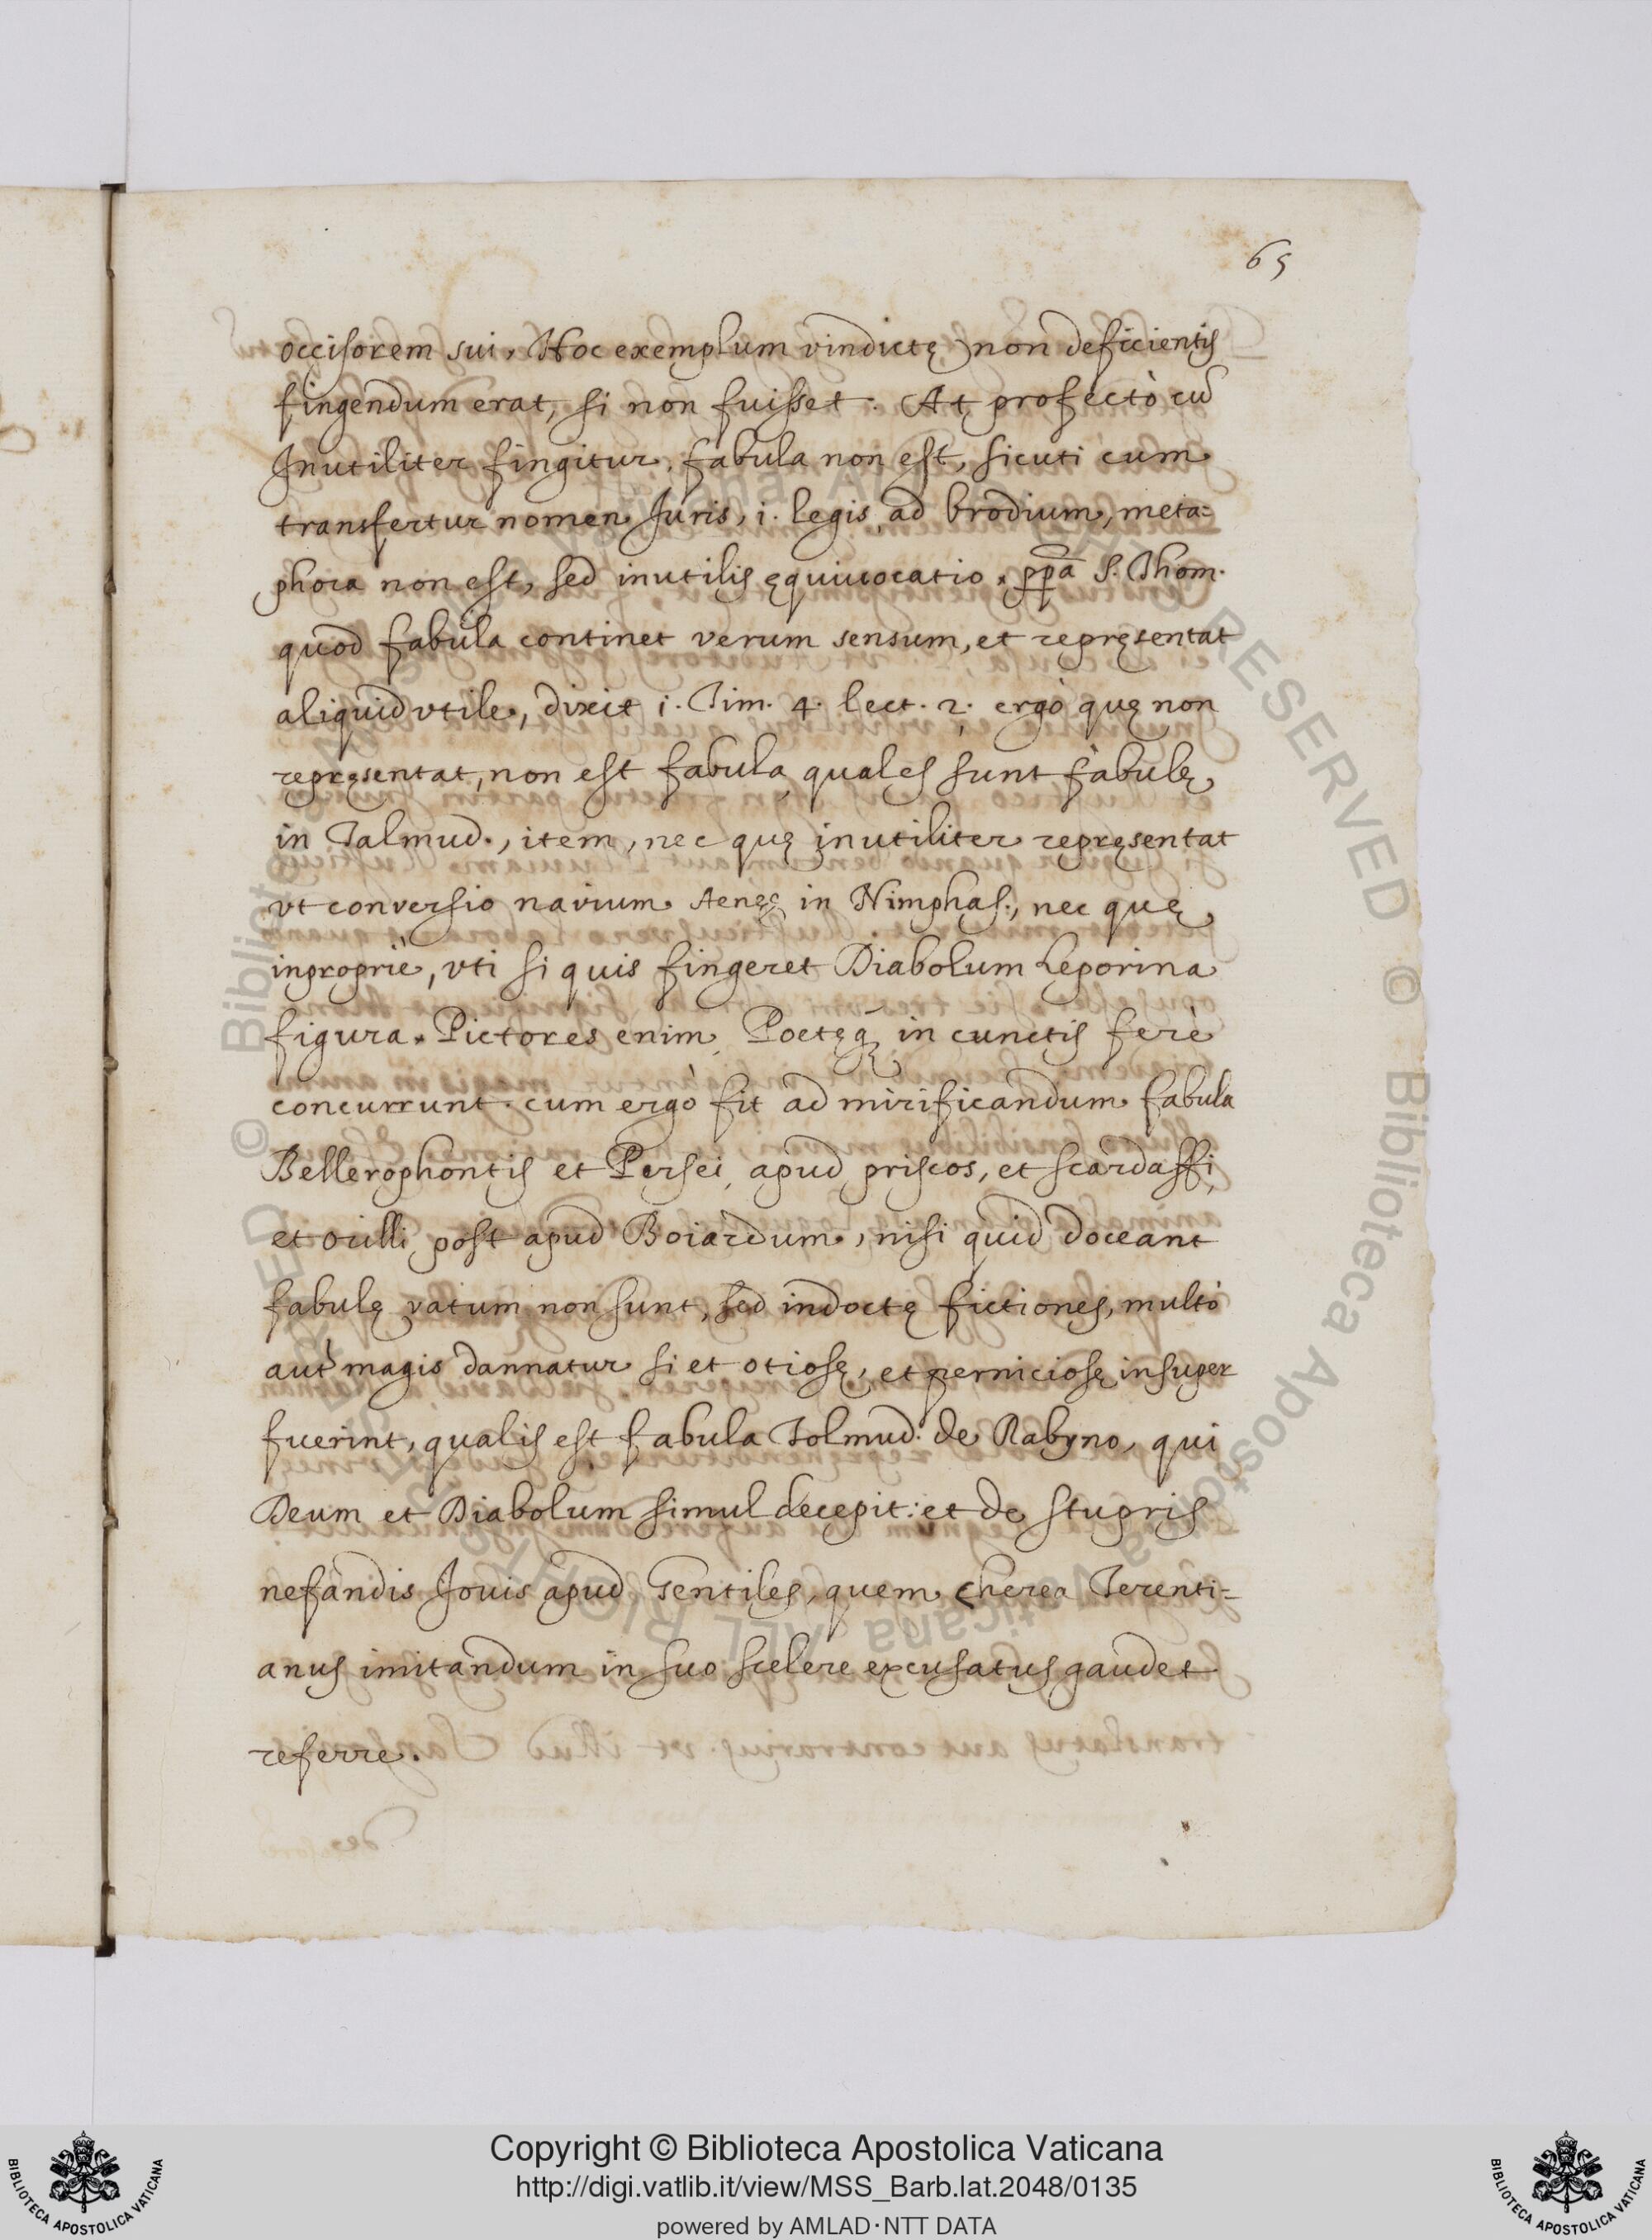 65
occisorem sui, Hoc exemplum vindictę non deficientis
fingendum erat, si non fuisset. At profectò cũ
Inutiliter fingitur, fabula non est, sicuti cum
transfertur nomen Juris, i. legis ad brodium, meta=
phora non est, sed inutilis ęquiuocatio, ppa S. Thom.
quod fabula continet verum sensum, et repręsentat
aliquid vtile, dixit i. Tim. 4. lect. 2. ergò quę non
repręsentat, non est fabula quales sunt fabulę
in Talmud., item, nec quę inutiliter repręsentat
vt conversio navium Aenęę in Nimphas, nec quę
inproprie, vti si quis fingeret Diabolum leporina
figura. Pictores enim Poetęq; in cunctis ferè
concurrunt. cum ergò fit ad mirificandum fabula
Bellerophontis et Persei apud priscos, et scardassi,
et orilli post apud Boiardum, nisi quid doceant
fabulę vatum non sunt, sed indoctę fictiones, multò
aut magis dannatur si et otiosę, et perniciosę insuper
fuerint, qualis est fabula Tolmud. de Rabyno, qui
Deum et Diabolum simul decepit: et de stupris
nefandis Jouis apud Gentiles, quem cherea Terenti=
anus imitandum in suo scelere excusatus gaudet
referre.
Copyright © Biblioteca Apostolica Vaticana
http://digi.vatlib.it/view/MSS_Barb.lat.2048/0135
powered by AMLAD·NTT DATA
BIBLIOTECA APOSTOLICA VATICANA
BIBLIOTECA APOSTOLICA VATICANA